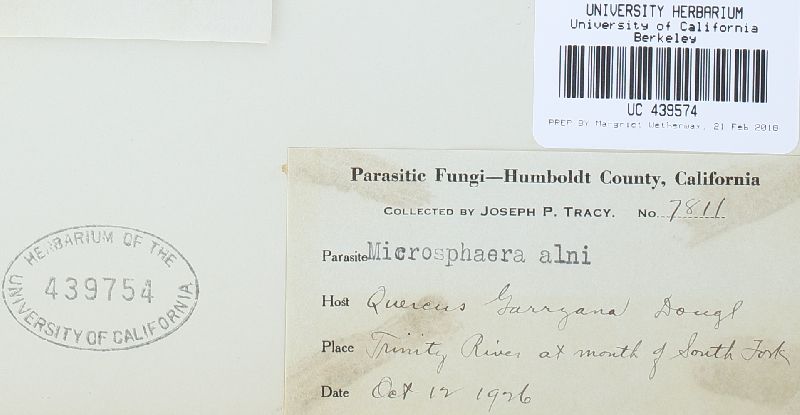 UNIVERSITY HERBARIUM
University of California
Berkeley
UC 439574
PREP BY Margriet Wetherwax, 21 Feb 2018
Parasitic Fungi—Humboldt County, California
COLLECTED BY JOSEPH P. TRACY. No. 7811
Parasite Microsphaera alni
Host Quercus Garryana Dougl
Place Trinity River at mouth of South Fork
Date Oct 12 1926
HERBARIUM OF THE
439754
UNIVERSITY OF CALIFORNIA